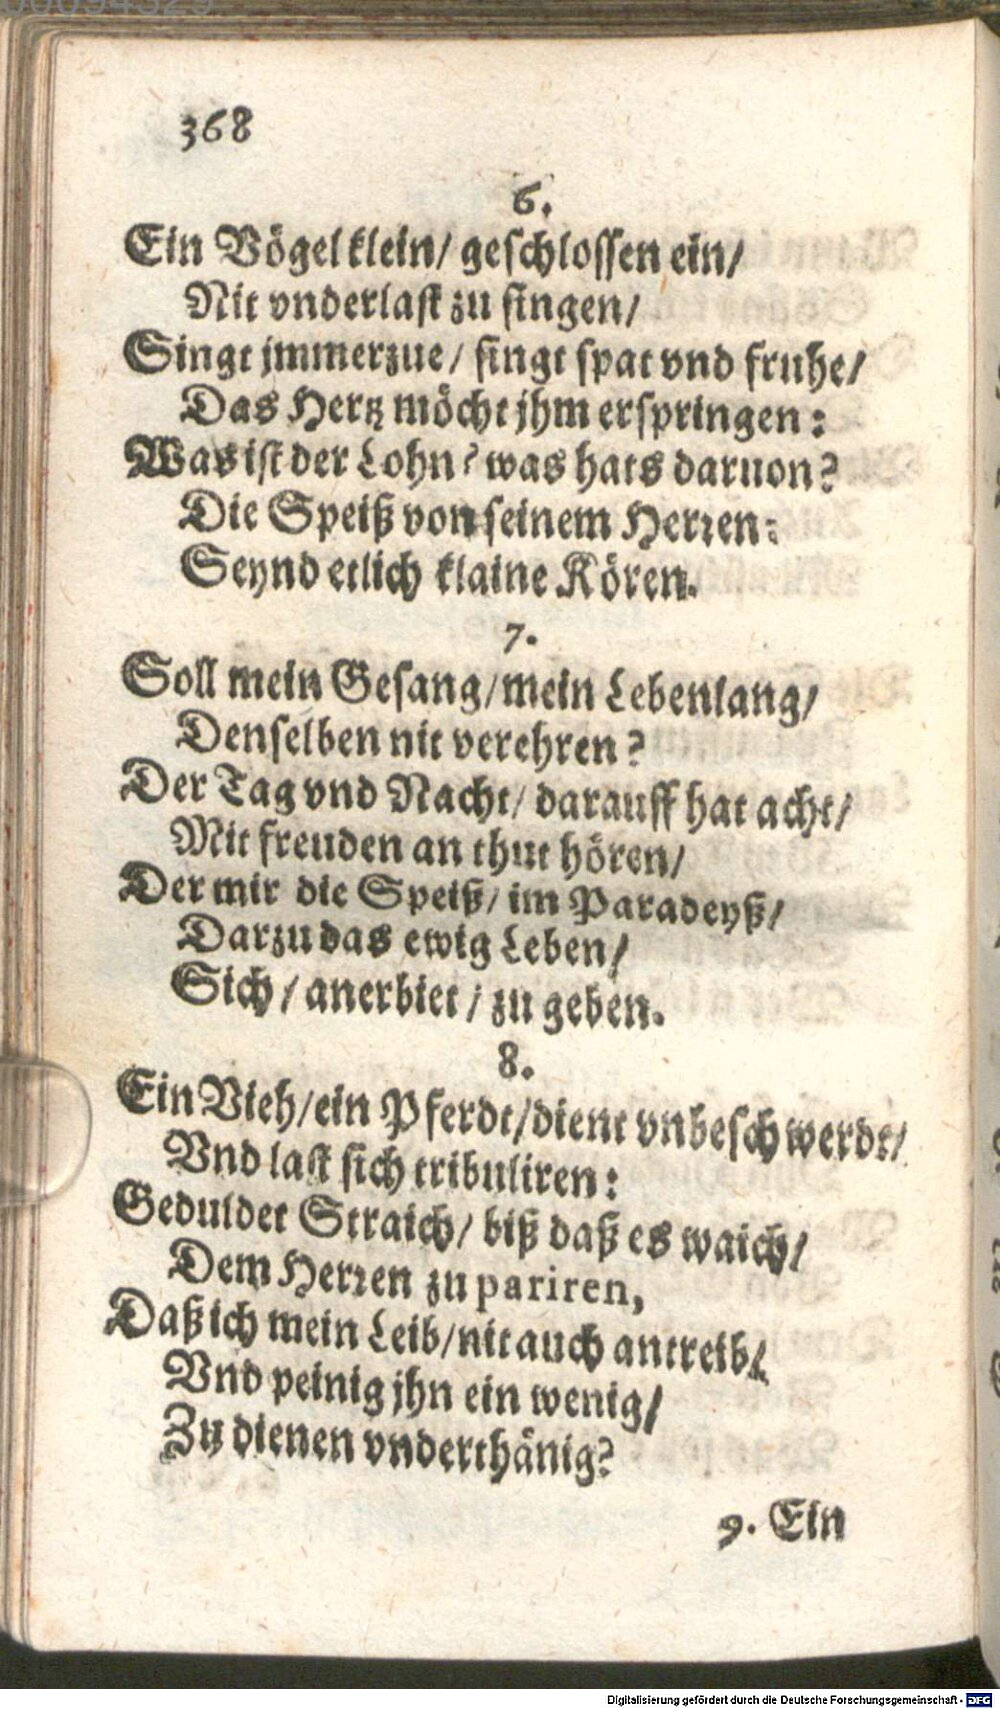 368
6.
Ein Vögel klein/ geschlossen ein/
Nit vnderlast zu singen/
Singt jmmerzue/ singt spat vnd fruhe/
Das Hertz möcht jhm erspringen:
Was ist der Lohn? was hats daruon?
Die Speiß von seinem Herren:
Seynd etlich klaine Kören.
7.
Soll mein Gesang/ mein Lebenlang/
Denselben nit verehren?
Der Tag vnd Nacht/ darauff hat acht/
Mit freuden an thut hören/
Der mir die Speiß/ im Paradeyß/
Darzu das ewig Leben/
Sich/ anerbiet/ zu geben.
8.
Ein Vieh/ ein Pferdt/ dient vnbeschwerdt/
Vnd last sich tribuliren:
Geduldet Straich/ biß daß es waich/
Dem Herren zu pariren,
Daß ich mein Leib/ nit auch antreib/
Vnd peinig jhn ein wenig/
Zu dienen vnderthänig?
9. Ein
Digitalisierung gefördert durch die Deutsche Forschungsgemeinschaft - DFG